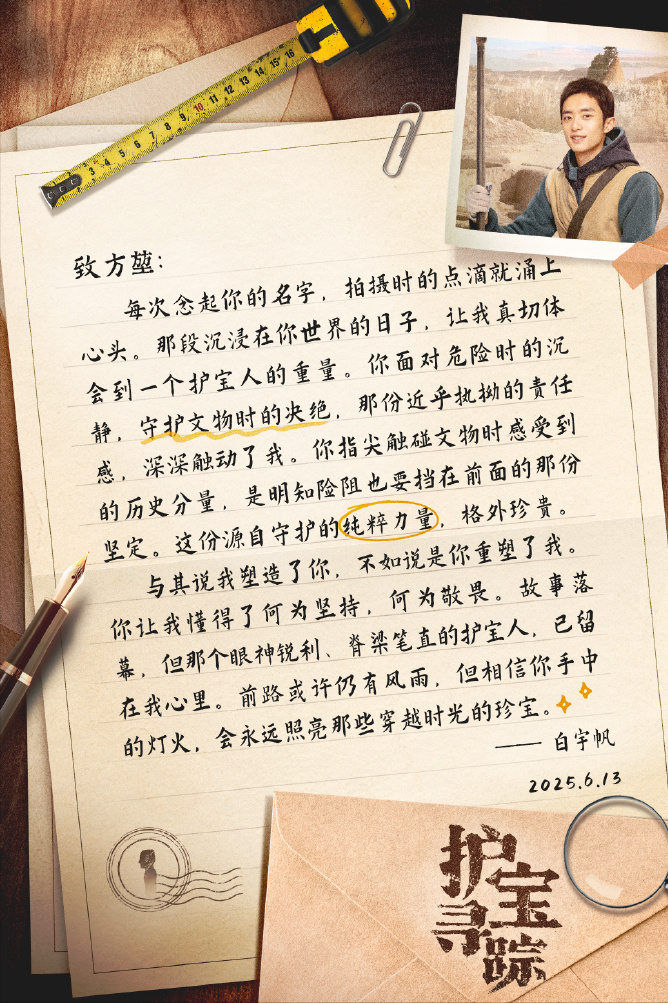 3 4 5 6 7 8 9 10 11 12 13 14 15 16
致方堃：
每次念起你的名字，拍摄时的点滴就涌上
心头。那段沉浸在你世界的日子，让我真切体
会到一个护宝人的重量。你面对危险时的沉
静，守护文物时的决绝，那份近乎执拗的责任
感，深深触动了我。你指尖触碰文物时感受到
的历史分量，是明知险阻也要挡在前面的那份
坚定。这份源自守护的纯粹力量，格外珍贵。
与其说我塑造了你，不如说是你重塑了我。
你让我懂得了何为坚持，何为敬畏。故事落
幕，但那个眼神锐利、脊梁笔直的护宝人，已留
在我心里。前路或许仍有风雨，但相信你手中
的灯火，会永远照亮那些穿越时光的珍宝。
—— 白宇帆
2025.6.13
护宝
寻踪